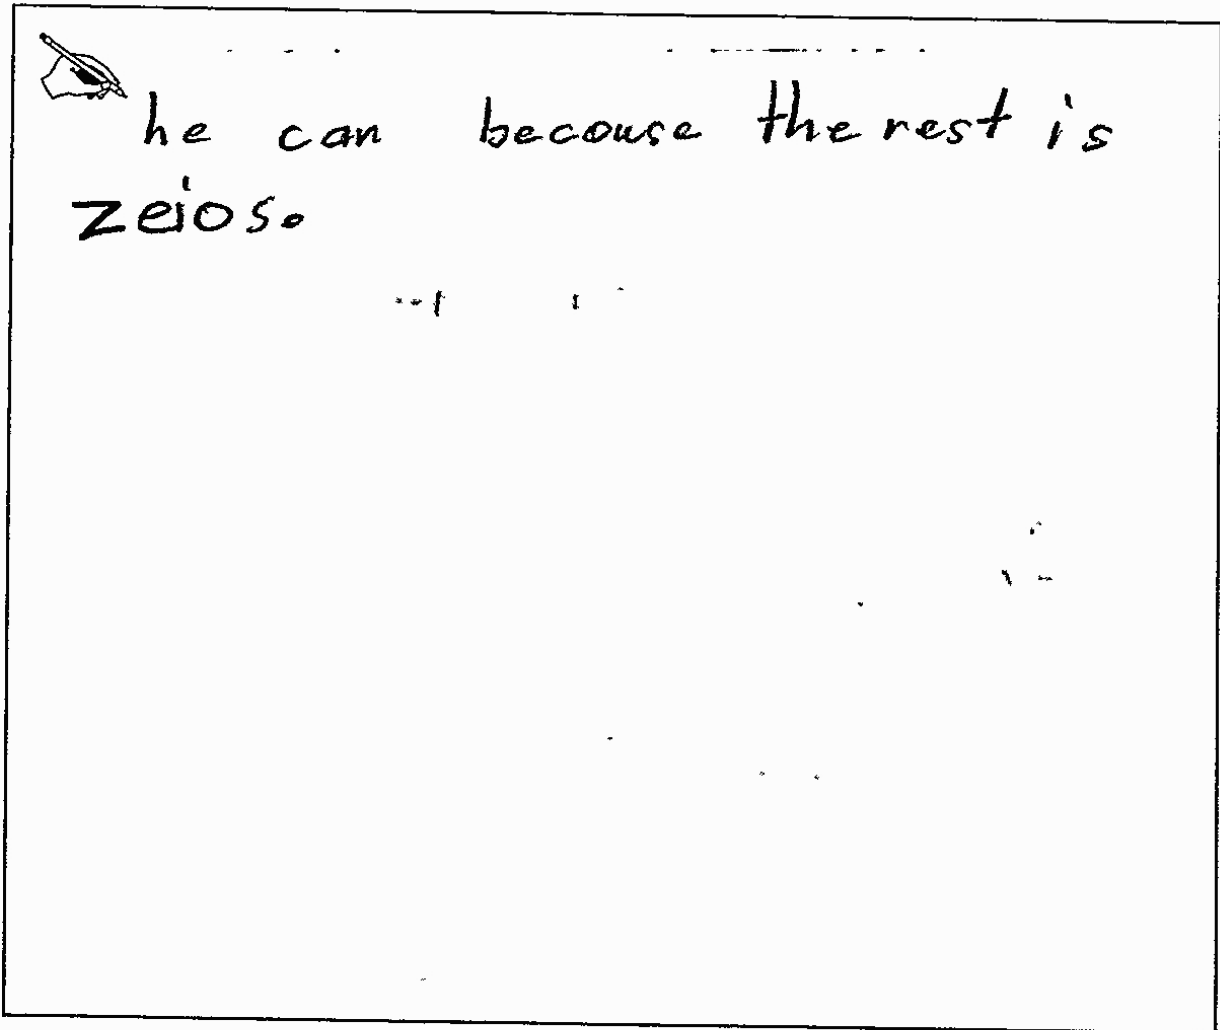 he can becouse the rest is
zeios.